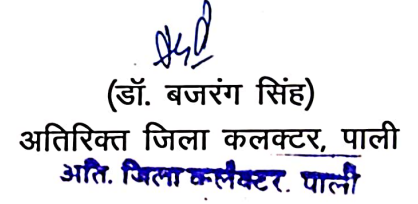 (डॉ. बजरंग सिंह)
अतिरिक्त जिला कलक्टर, पाली
अति. जिला कलैक्टर. पाली